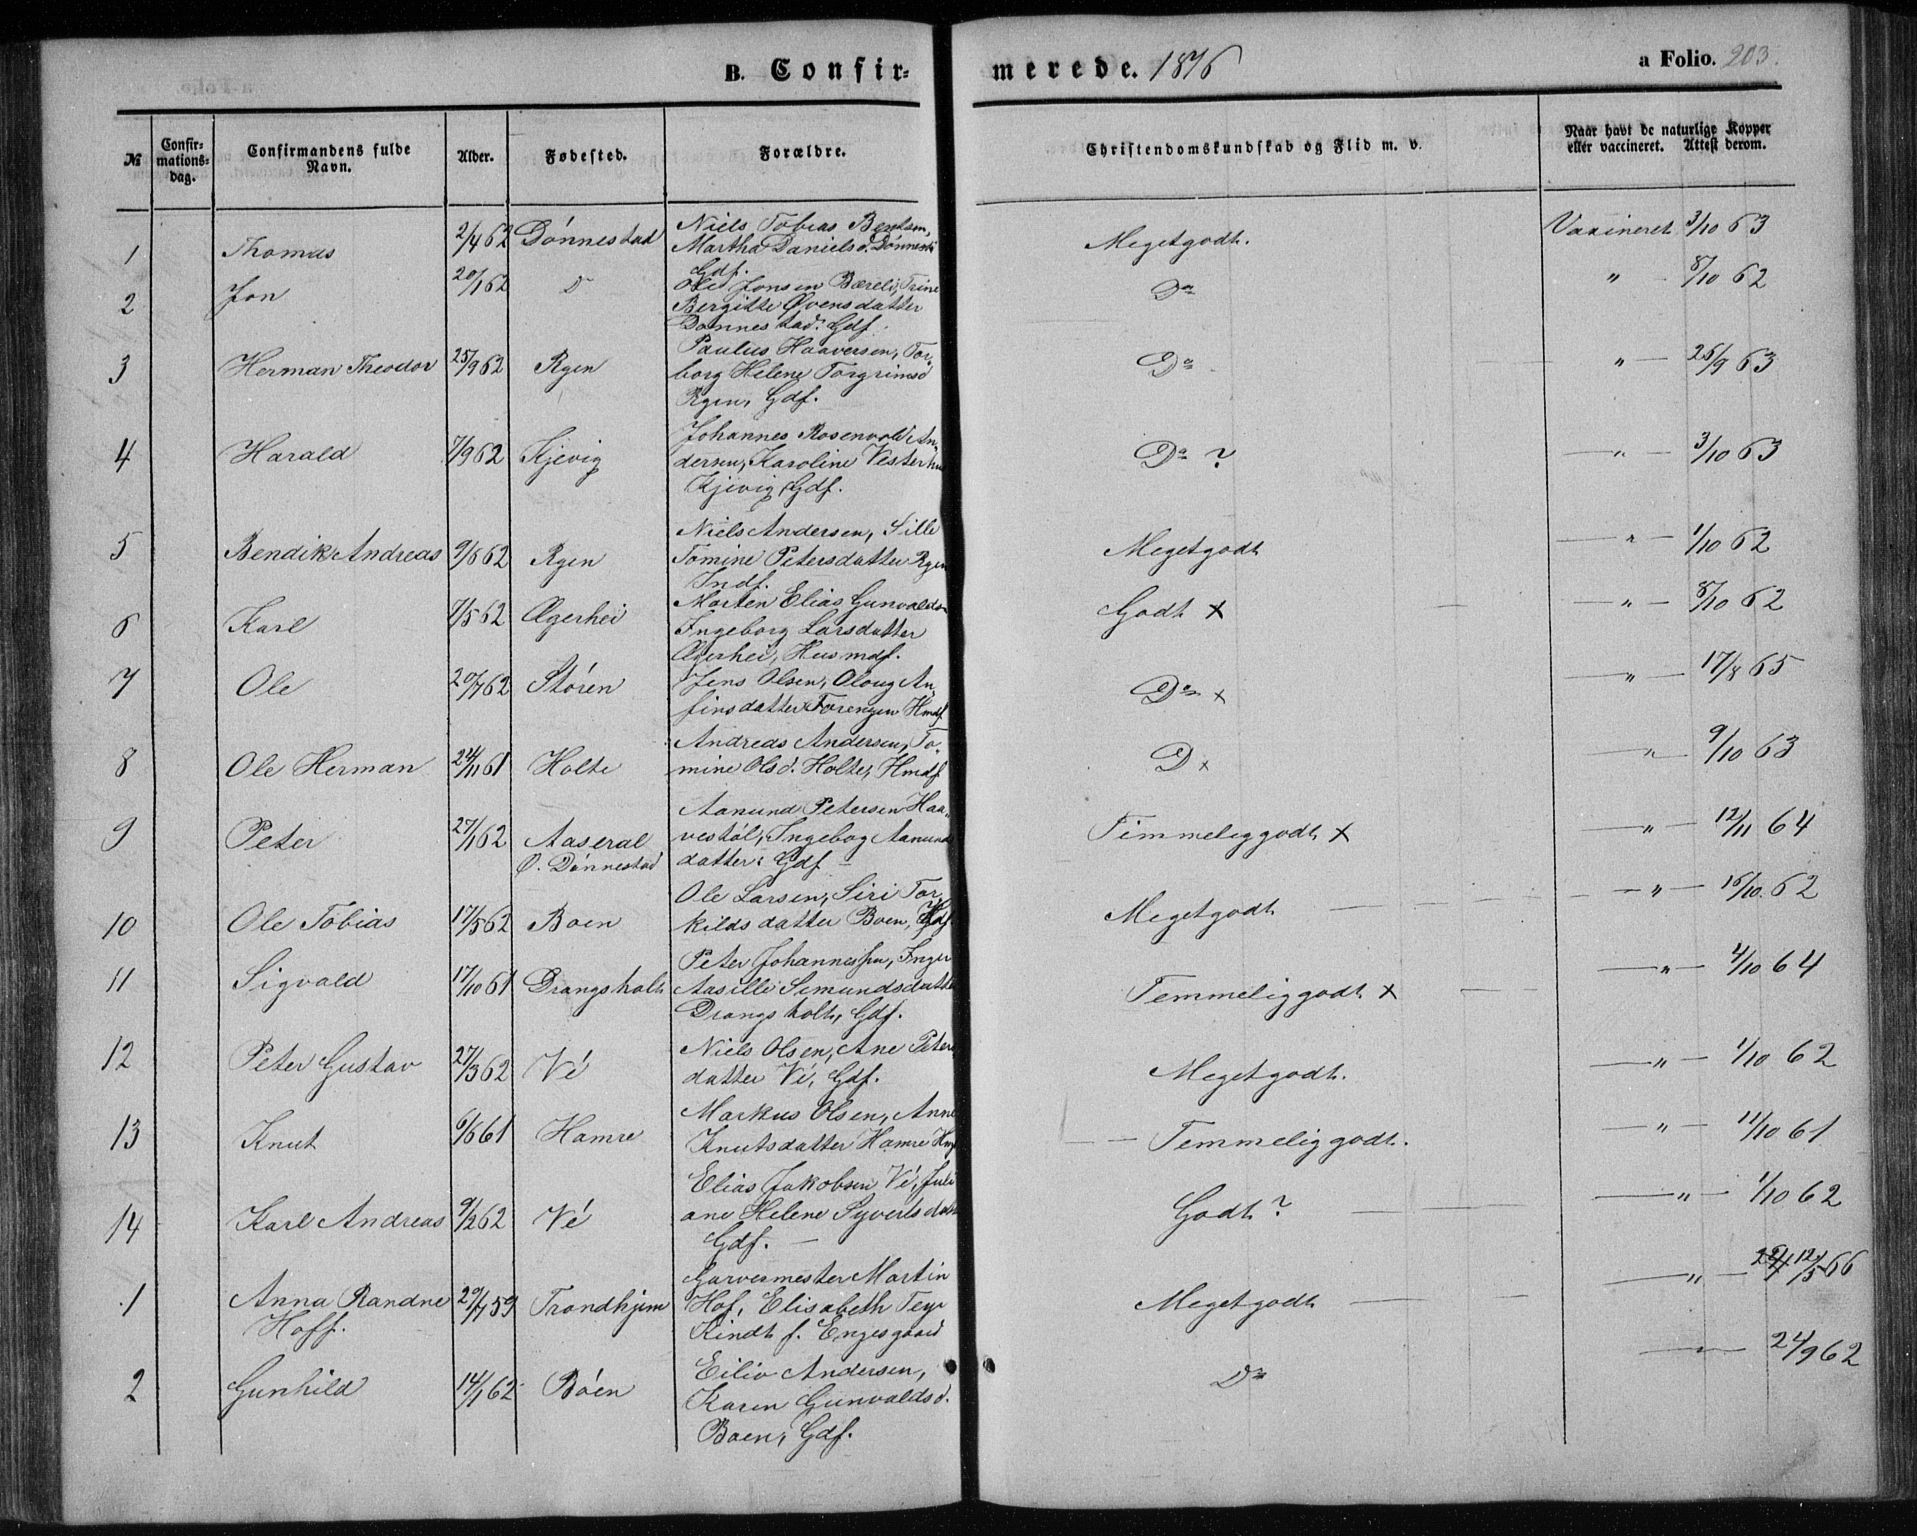 B. Confir-
merede. 1876
a Folio. 203.
№
Confir-
mations-
dag.
Confirmandens fulde
Navn.
Alder.
Fødested.
Forældre.
Christendomskundskab og Flid m. v.
Naar havt de naturlige Kopper
eller vaccineret. Attest derom.
1 Thomas 2/4 62 Dönnestad Niels Tobias Bentsen,
Martha Daniels d. Dönnest.
Gdf.
Megetgodt. Vaxineret 3/10 63
2 Jon 20/1 62 D Ole Jonsen Bæreli, Trine
Bergitte Ovensdatter
Donnestad. Gdf.
Do " 8/10 62
3 Herman Theodor 25/9 62 Rgen Paulus Haaversen, Tor-
borg Helene Torgrimsd
Rgen, Gdf.
Do " 26/9 63
4 Harald 7/9 62 Kjevig Johannes Rosenvold An-
dersen, Karoline Vesterhus
Kjevig, Gdf.
Do ? " 3/10 63
5 Bendik Andreas 9/6 62 Rgen Niels Andersen, Sille
Tomine Petersdatter Rgen
Indf.
Megetgodt " 1/10 62
6 Karl 7/5 62 Ægerhei Morten Elias Gunvalds-
Ingeborg Larsdatter
Ægerhei, Husmdf.
Godt x " 8/10 62
7 Ole 20/7 62 Stóren Jens Olsen, Oloug An-
finsdatter Forengen Hmdf
Do x " 17/8 65
8 Ole Herman 24/11 61 Holte Andreas Andersen, To-
mine Olsd. Holte, Hmdf
D x " 9/10 63
9 Peter 27/1 62 Aaseral
O. Dönnestad
Aanund Petersen Haa-
vestöl, Ingebog Aanund
datter: Gdf
Temmeliggodt x " 12/11 64
10 Ole Tobias 17/5 62 Boen Ole Larsen, Siri Tor-
kildsdatter Boen, Gdf
Megetgodt " 16/10 62
11 Sigvald 17/10 61 Drangsholt Peter Johannessen, Inger
Aasille Simundsdatter
Drangsholt, Gdf.
Temmeliggodt x " 4/10 64
12 Peter Gustav 27/3 62 Vé Niels Olsen, Ane Peters
datter Vé, Gdf.
Megetgodt. " 1/10 62
13 Knut 6/6 61 Hamre Markus Olsen, Anne
Knutsdatter Hamre Hmf
Temmeliggodt. " 11/10 61
14 Karl Andreas 9/2 62 Vé Elias Jakobsen Vé, Juli
ane Helene Syvertsdatt
Gdf.
Godt ? " 1/10 62
1 Anna Randne
Hoff.
20/7 59 Trondhjem Garvermester Martin
Hof, Elisabeth
Kindt f. Engesgaard
Megetgodt " 12/5 66
2 Gunhild 14/1 62 Bóen Eiliv Andersen,
Karen Gunvaldsd.
Boen, Gdf.
Do 24/9 62